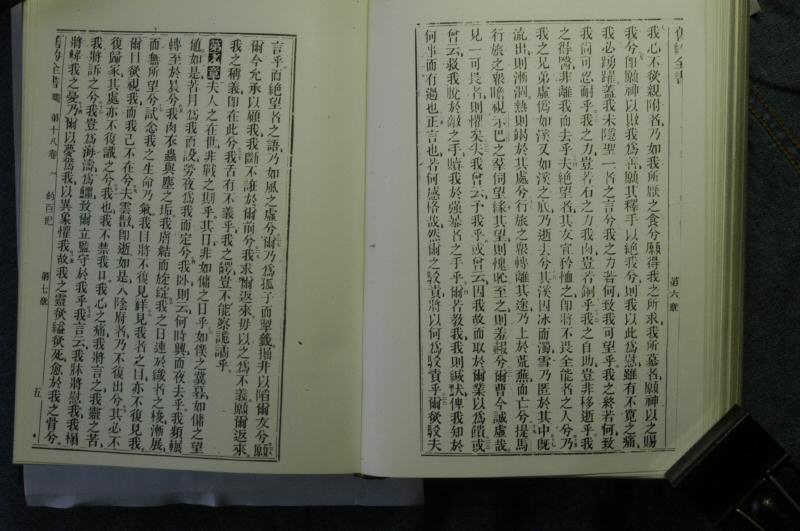 舊約全書
第六章
我心不欲親附者乃如我所厭之食兮願得我之所求我所慕者願神以之賜
我兮卽願神以敗我爲善願其釋手以絶我兮則我以此爲慰雖有不寛之痛
我必踴躍蓋我未隱聖一者之言兮我之力若何致我可望乎我之終若何致
我尙可忍耐乎我之力豈若石之力我肉豈若銅乎我之自助豈非移逝乎我
之得醫非離我而去乎夫絶望者其友宜矜恤之卽將不畏全能者之人兮乃
我之兄弟虛僞如溪又如溪之底乃逝去兮其溪因冰而濁雪乃匿於其中旣
流出則漸涸熱則竭於其處兮行旅之衆轉離其途乃上於荒蕪而亡兮提馬
行旅之衆瞻視示巴之羣伺望緣其望則愧恥至之則羞赧兮爾曹今誠虛哉
見一可畏者則懼矣夫我曾云予我乎或曾云因我故而取於爾業以爲饋或
曾云救我脫於敵之手贖我於强暴者之手乎爾若教我我則緘默俾我知於
何事而有過也正言也若何感恪哉然爾之駁責將以何爲駁責乎爾欲駁夫
言乎而絶望者之語乃如風之虛兮爾乃爲孤子而掣籤掘井以陷爾友兮願
爾今允承以顧我我斷不誑於爾前兮我求爾返來毋以之爲不義願爾返來
我之稱義卽在此兮我舌有不義乎我之齶豈不能察詭譎乎
第七章夫人之在世非戰之期乎其日非如傭之日乎如僕之冀暮如傭之望
値如是若月爲我而受勞夜爲我而定兮我臥則云何時興而夜去乎我頻輾
轉至於晨兮我肉衣蟲與塵之垢我膚結而旋綻我之日速於織者之梭漸展
而無所望兮試念我之生命乃氣我目將不復見鮮見我者之目亦不復見我
爾目欲視我而我已不在兮夫雲散卽逝如是入陰府者乃不復出兮其必不
復歸家其處亦不復識之兮我也我不禁我口我心之痛我將言之我靈之苦
我將訴之兮我豈爲海濤爲鱷致爾立監守於我乎我言云我牀將慰我我榻
將綽我之憂乃爾以憂驚我以異象懼我故我之靈欲縊欲死愈於我之骨兮
舊約全書 第十八卷 約百記 第七章 五